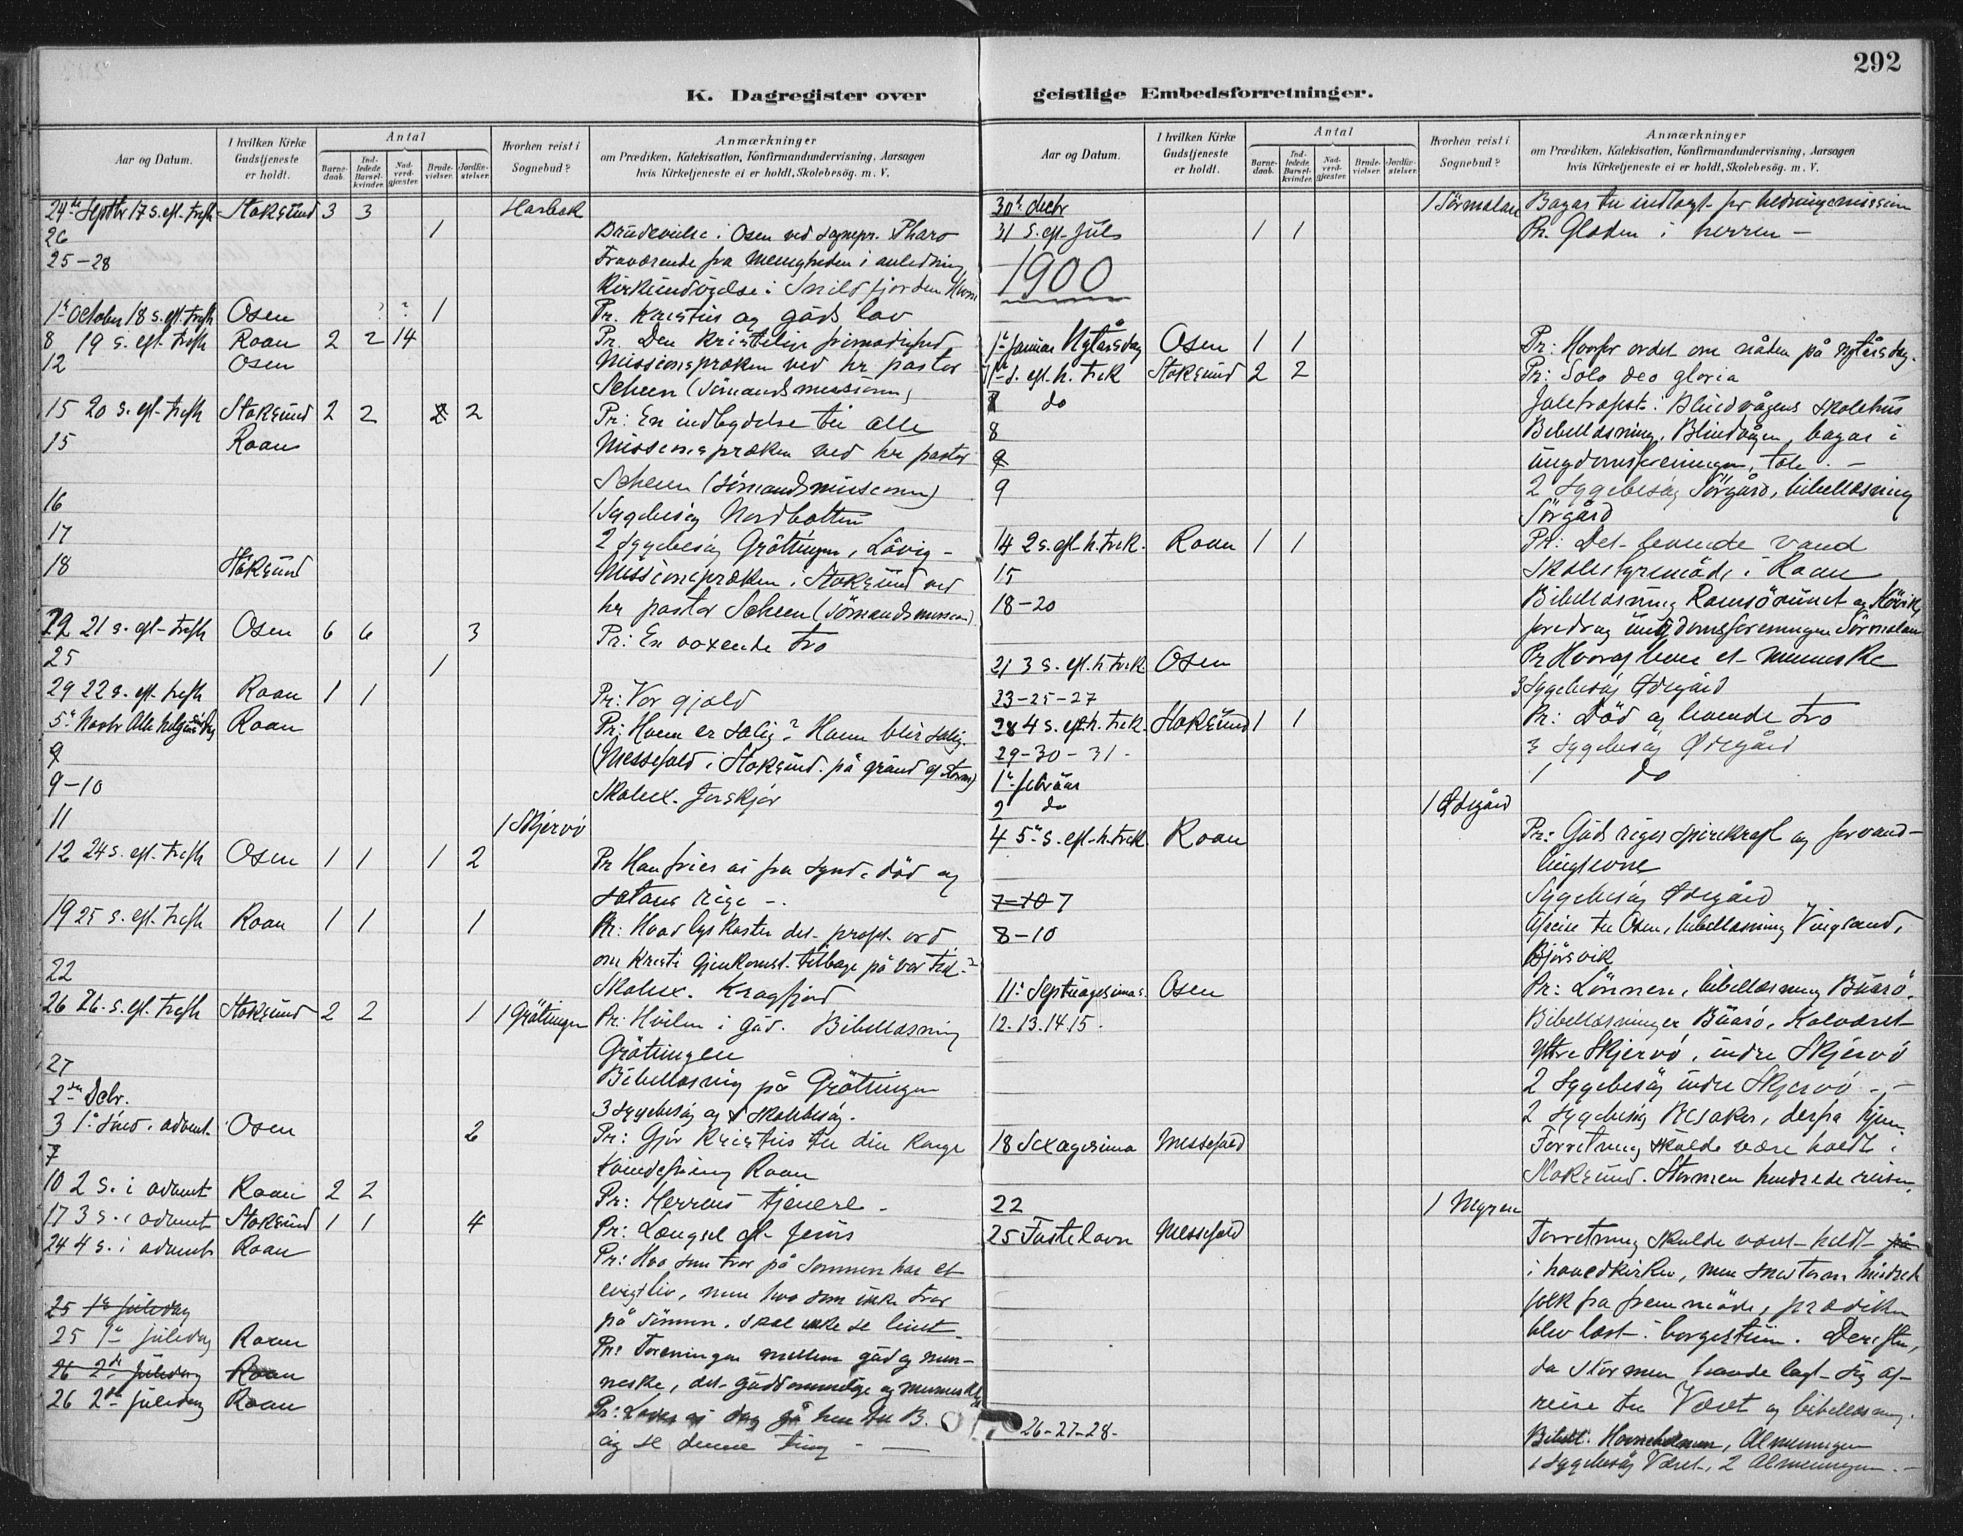 292
K. Dagregister over geistlige Embedsforretninger.
Aar og Datum. I hvilken Kirke Gudstjeneste er holdt. Antal Barnedaab. Indledede Barselkvinder. Nadverdgjæster. Brudevielser. Jordfæstelser. Hvorhen reist i Sognebud? Anmærkninger om Prædiken, Katekisation, Konfirmandundervisning, Aarsagen hvis Kirketjeneste ei er holdt, Skolebesög. m. V.
24de Septbr 17 s. eft. trefh Stoksund 3 3 Harbak
26 1 Brudevielse i Osen ved sognepr. Pharo
25-28 Fraværende fra menigheden i anledning
Kirkeindvielse i Snildfjorden
1ste October 18 s. eft. trefh Osen ? ? 1 Pr. Kristus og guds lov
8 19 s. eft. trefh Roan 2 2 14 Pr. Den kristelige frimodighed
12 Osen Missionspræken ved hr pastor
Scheen (sömandsmissionen)
15 20 s. eft. trefh Stoksund 2 2 2 Pr: En indbydelse til alle
15 Roan Missionspræken ved hr pastor
Scheen (sömandsmissionen)
16 1 Sygebesög Nordbotten
17 2 Sygebesög Gröttingen, Lövig -
18 Stoksund Missionspræken i Stoksund ved
hr pastor Scheen (Sömandsmissionen)
22 21 s. eft. trefh Osen 6 6 3 Pr: En voxende tro
25 1
29 22 s. eft. trefh Roan 1 1 Pr: Vor gjæld
5te Novbr Alle helgensdag Roan Pr: Hvem er salig? Hvem blir salig.
9 (Messefald i Stoksund på grund af storm)
9-10 Skolex.
11 1 Skjervö
12 24 s. eft. trefh Osen 1 1 1 2 Pr Han fries os fra synd, död og
satans rige -.
19 25 s. eft. trefh Roan 1 1 1 Pr: Hvad lys kaster det profet. ord
om Kristi gjenkomst tilbage på vor tid?
22 Skolex. Kragfjord
26 26 s. eft. trefh Stoksund 2 2 1 1 Gröttingen Pr: Hvilen i gud. Bibellæsning
Gröttingen
27 Bibellæsning på Gröttingen
2den Decbr. 3 sygebesög og skolebesög.
3 1ste sönd. advent Osen 2 Pr: Gjör Kristus til din konge
7 Kvindeforening Roan
10 2 s. i advent Roan 2 2 Pr: Herrens tjenere -
17 3 s. i advent Stoksund 1 1 4 Pr: Længsel eft. Jesus
24 4 s. i advent Roan Pr: Hvo som tror på Sönnen har et
evigt liv, men hvo som ikke tror
25 1ste juledag på Sönnen, skal ikke se livet.
25 1ste juledag Roan Pr: Foreningen mellem gud og men-
26 2den juledag Roan neske, det guddommelige og menneskelige
26 2den juledag Roan Pr: Lader os dog gå hen til B.
og se denne ting -
Aar og Datum. I hvilken Kirke Gudstjeneste er holdt. Antal Barnedaab. Indledede Barselkvinder. Nadverdgjæster. Brudevielser. Jordfæstelser. Hvorhen reist i Sognebud? Anmærkninger om Prædiken, Katekisation, Konfirmandundervisning, Aarsagen hvis Kirketjeneste ei er holdt, Skolebesög. m. V.
30te decbr 1 Sörmalan Bazar til indtægt for hedningemission
31 s. eft. Jul 1 1 Pr. Glæden i herren -
1900
1ste januar Nytårsdag Osen 1 1 Pr: Hvorfor ordet om nåden på nytårsdag.
7 1ste s. eft. h. trek Stoksund 2 2 Pr: Solo deo gloria
do Juletræfest i Blindvågens skolehus
8 Bibellæsning, Blindvågen, bazar i
ungdomsforeningen, tale. -
9 2 sygebesög Sörgård, bibellæsning
Sörgård
14 2 s. eft. h. trek. Roan 1 1 Pr: Det levende vand
15 Skolestyremöde i Roan
18-20 Bibellæsning
foredrag ungdomsforeningen Sörmalan
21 3 s. eft. h. trek. Osen Pr Hvoraf lever et menneske
23-25-27 3 Sygebesög Ödegård
28 4 s. eft. h. trek. Stoksund 1 1 Pr: Död og levende tro
29-30-31- 3 Sygebesög Ödegård
1ste februar 1 do
2 do 1 Ödegård
4 5te s. eft. h. trek. Roan Pr: Guds riges spirekraft og forvand-
lingsevne
7-10 7 Sygebesög Ödegård
8-10 Afreise til Osen, bibellæsning Vingsand,
Bjørsvik
11te Septuagesima Osen Pr: Lönnen, bibellæsning Buarö.
12.13.14.15. Bibellæsninger Buarö, Kalværet
Ytre Skjervö, indre Skjervö
2 Sygebesög indre Skjervö -
2 Sygebesög Besaker, derfra hjem.
18 Sexagesima Messefald Forretning skulde være holdt i
Stoksund. Stormen hindrede reisen.
22 1 Myren
25 Fastelavn Messefald Forretning skulde været holdt på
i hovedkirken, men snestorm hindrede
folk fra fremmöde, prædiken
blev læst i borgestuen. Derefter,
da stormen havde lagt sig af-
reise til Været og bibellæsning.
26-27-28- Bibell. Almenningen
1 Sygebesög Været, 2 Almenningen. -